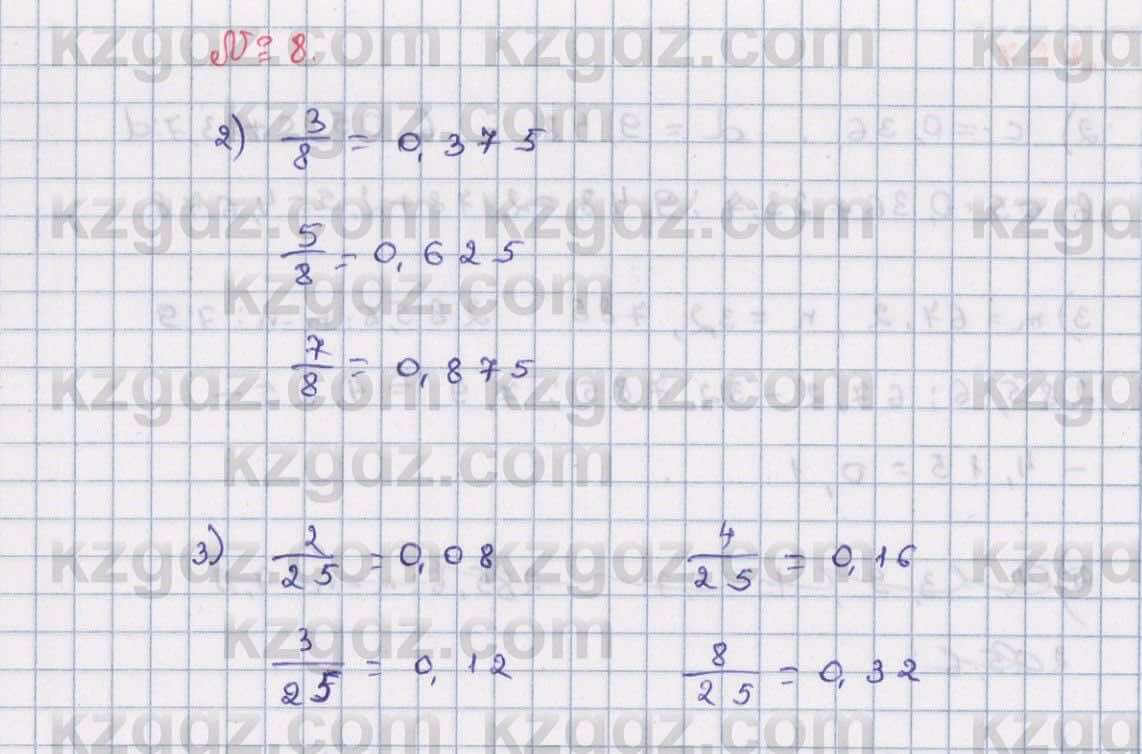 № 8.
2) 3/8 = 0,375
5/8 = 0,625
7/8 = 0,875
3) 2/25 = 0,08 4/25 = 0,16
3/25 = 0,12 8/25 = 0,32
kzgdz.com